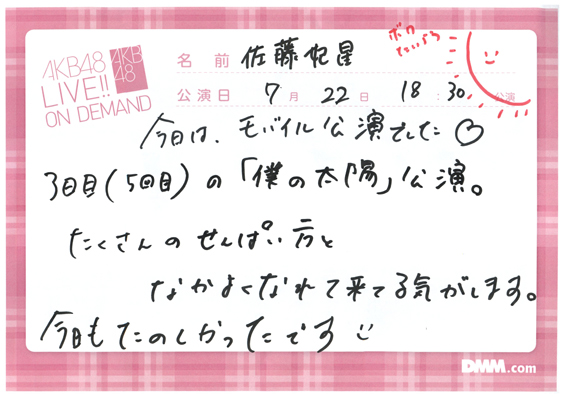 AKB48
LIVE!!
ON DEMAND
AKB48
名 前 佐藤妃星
ボク
たいよう
公演日 7月 22日 18:30公演
今日は、モバイル公演でした♡
3日目(5回目)の「僕の太陽」公演。
たくさんのせんぱい方と
なかよくなれて来てる気がします。
今日もたのしかったです
DMM.com